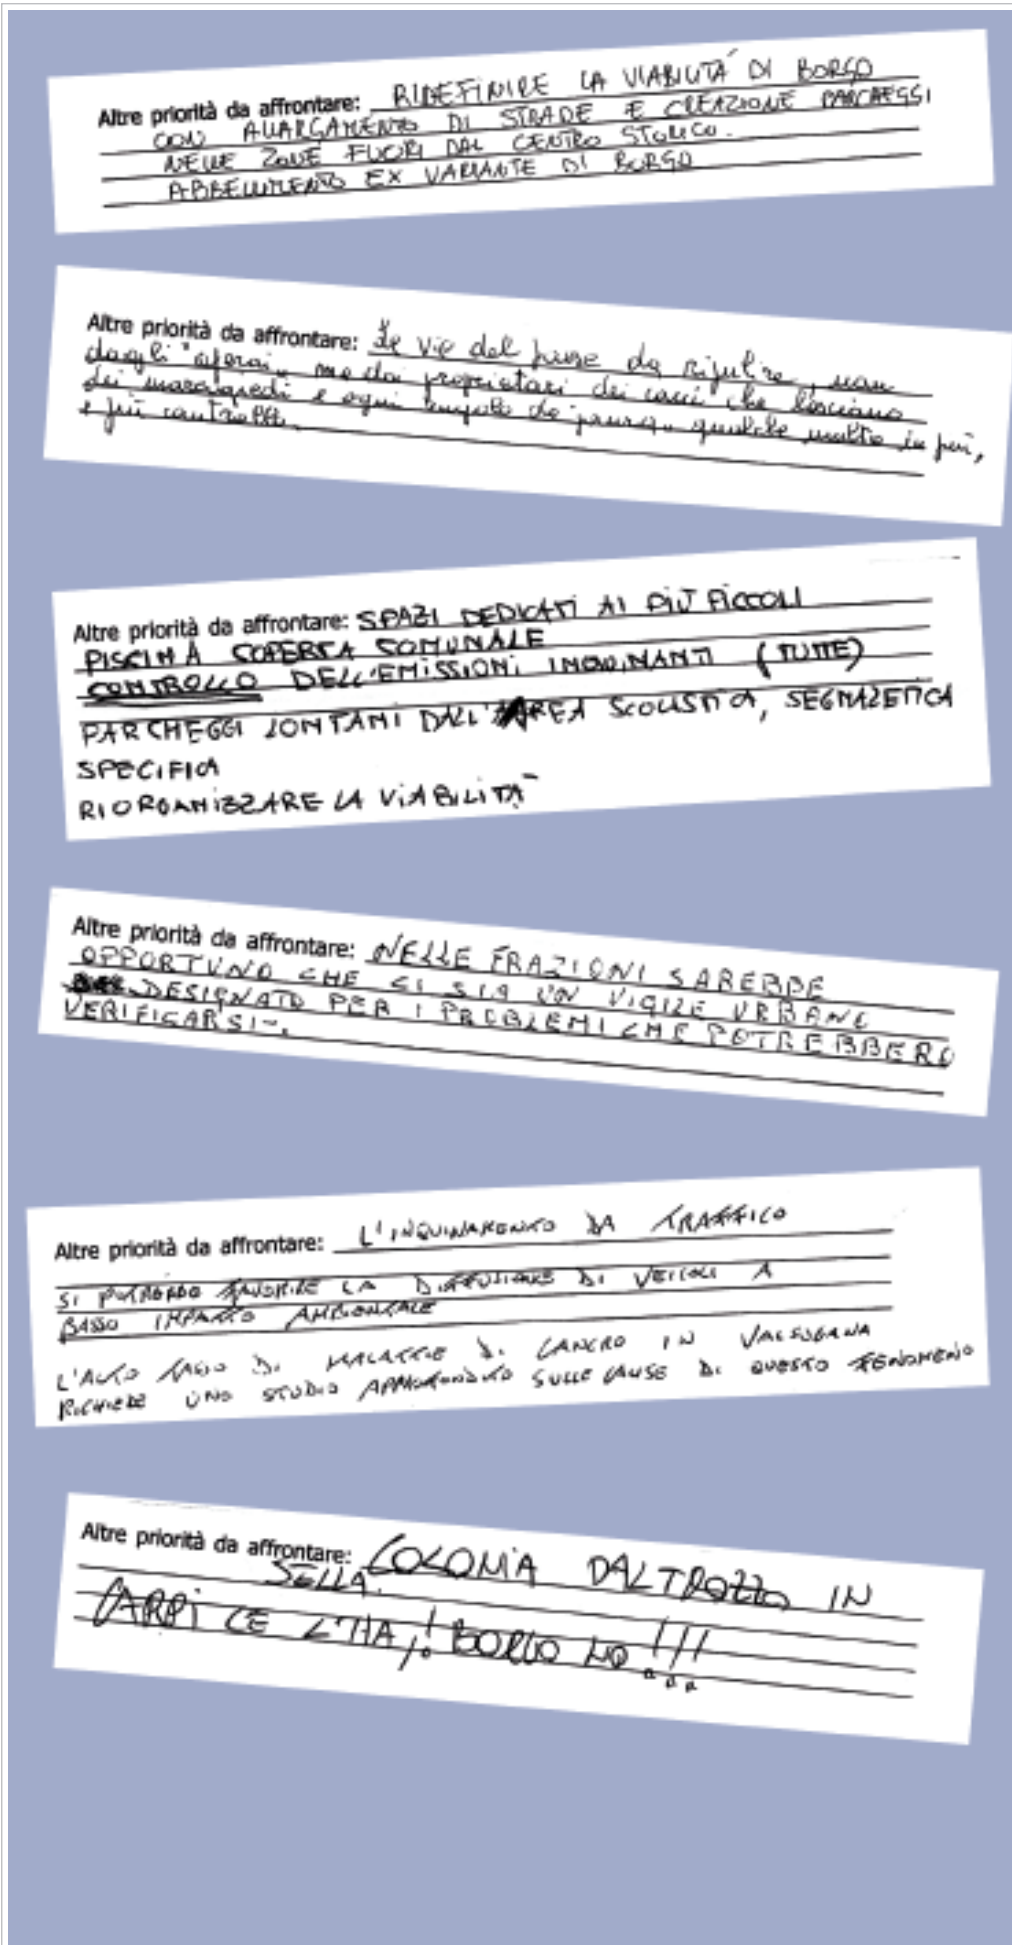 Altre priorità da affrontare: RIDEFINIRE LA VIABILITÁ DI BORGO
CON ALLARGAMENTO DI STRADE E CREAZIONE PARCHEGGI
NELLE ZONE FUORI DAL CENTRO STORICO.
ABBELLIMENTO EX VARIANTE DI BORGO
Altre priorità da affrontare: Le vie del paese da ripulire, non
dagli "operai" ma dai proprietari dei cani che lasciano
dei marciapiedi e ogni da paura. qualche multa in più,
e più controlli.
Altre priorità da affrontare: SPAZI DEDICATI AI PIÙ PICCOLI
PISCINA COPERTA COMUNALE
CONTROLLO DELL'EMISSIONI INQUINANTI (TUTTE)
PARCHEGGI LONTANI DALL'AREA SCOLASTICA, SEGNALETICA
SPECIFICA
RIORGANIZZARE LA VIABILITÀ
Altre priorità da affrontare: NELLE FRAZIONI SAREBBE
OPPORTUNO CHE CI SIA UN VIGILE URBANO
DESIGNATO PER I PROBLEMI CHE POTREBBERO
VERIFICARSI-.
Altre priorità da affrontare: L'INQUINAMENTO DA TRAFFICO
SI POTREBBE FAVORIRE LA DIFFUSIONE DI VEICOLI A
BASSO IMPATTO AMBIENTALE
L'ALTO TASSO DI MALATTIE DI CANCRO IN VALSUGANA
RICHIEDE UNO STUDIO APPROFONDITO SULLE CAUSE DI QUESTO FENOMENO
Altre priorità da affrontare: COLONIA DALTROZZO IN
SELLA.
CARPI CE L'HA,! BORGO NO!!!...